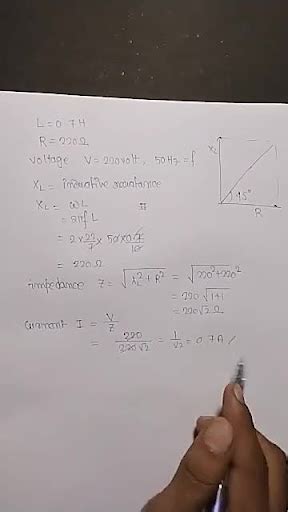 L = 0.7H
R = 220Ω
Voltage V = 220 volt, 50 Hz = f
XL = inductive reactance
XL = ωL
= 2πf L
= 2 × 22/7 × 50 × 0.7/10
= 220 Ω
impedance Z = √XL² + R² = √220² + 220²
= 220 √1+1
= 220√2 Ω
current I = V/Z
= 220/220√2 = 1/√2 = 0.7A
XL
45°
R